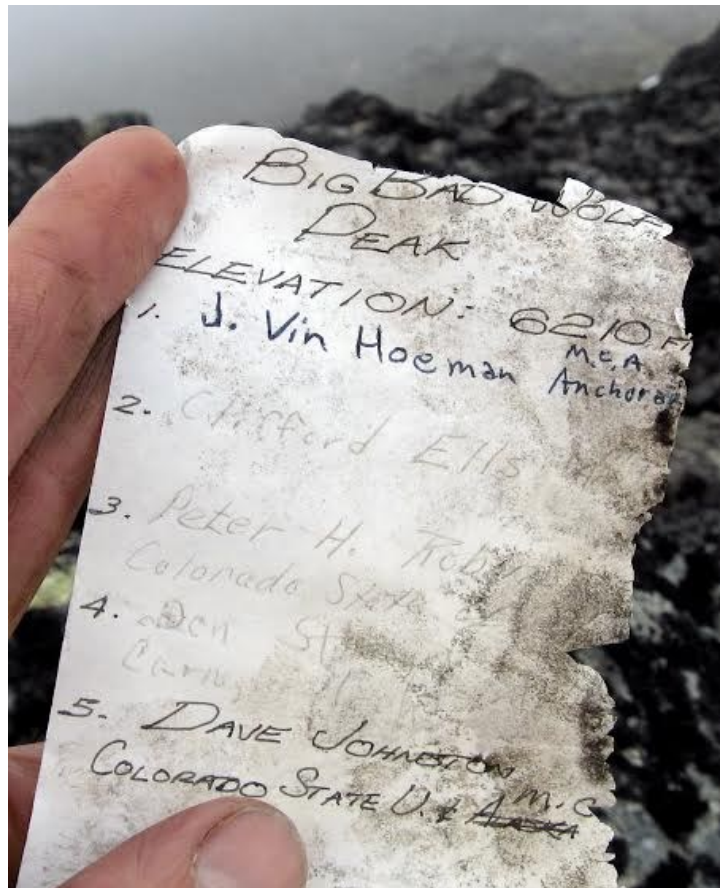 BIG BAD WOLF
PEAK
ELEVATION: 6210 Ft
1. J. Vin Hoeman M.C.A.
Anchorage
2. Clifford Ells
3. Peter H. Rob
Colorado State
4. Den St
5. DAVE JOHNSTON M.C
COLORADO STATE U. & ALASKA